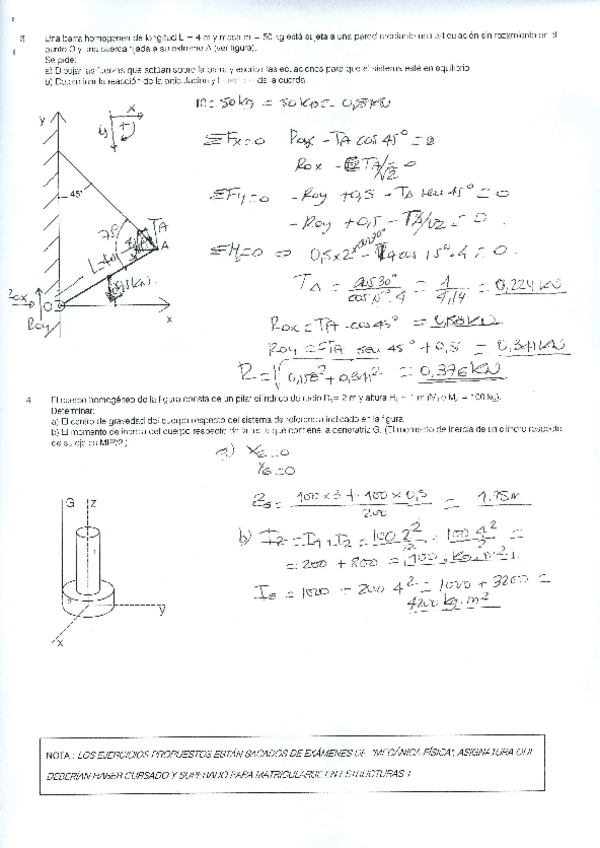 3 Una barra homogénea de longitud L = 4 m y masa m = 50 kg está sujeta a una pared mediante una articulación sin rozamiento en el
punto O y una cuerda fijada a su extremo A (ver figura).
Se pide:
a) Dibujar las fuerzas que actúan sobre la barra y escribir las ecuaciones para que el sistema esté en equilibrio
b) Determinar la reacción de la articulación y la tensión de la cuerda
m = 50 kg = 50 kp = 0,5 kN
ΣFx=0 Rox - TA cos 45° = 0
Rox - TA/√2 = 0
ΣFy=0 - Roy + 0,5 - TA sen 45° = 0
- Roy + 0,5 - TA/√2 = 0.
ΣM=0 ⇒ 0,5x2 x cos30° - TA cos 15°. 4 = 0.
TA = cos 30° / cos 15°. 4 = = 0,224 kN
Rox = TA · cos 45° = 0,158 kN
Roy = -TA sen 45° + 0,5 = 0,341 kN
R = √0,158² + 0,341² = 0,376 kN
y
x
y
45°
75°
TA
A
L=4m
0,5 kN
Rox
O
Roy
x
4 El cuerpo homogéneo de la figura consta de un pilar cilíndrico de radio
Determinar:
a) El centro de gravedad del cuerpo respecto del sistema de referencia indicado en la figura
b) El momento de inercia del cuerpo respecto de la recta que contiene la generatriz G. (El momento de inercia de un cilindro respecto
de su eje es MR²/2.)
a) XG=0
YG=0
ZG = 100 x 3 + 100 x 0,5 / 200 = 1.75 m
b) Iz = I1 + I2 = 100 2² / 2 + 100 4² / 2 =
= 200 + 800 = kg. m²
IG = 1000 + 200 4² = 1000 + 3200 =
4200 kg. m²
G z
y
x
NOTA : LOS EJERCICIOS PROPUESTOS ESTÁN SACADOS DE EXÁMENES DE "MECÁNICA FÍSICA", ASIGNATURA QUE
DEBERÍAN HABER CURSADO Y SUPERADO PARA MATRICULARSE EN ESTRUCTURAS 1